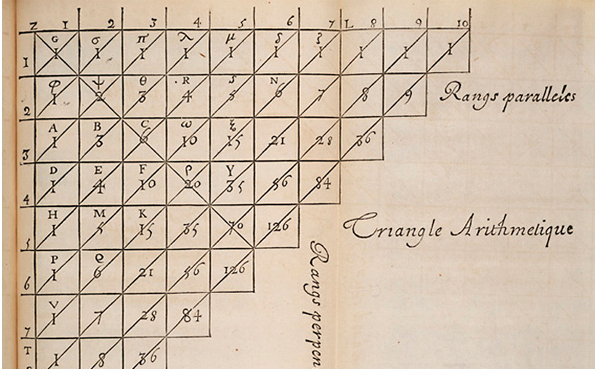 Z 1 2 3 4 5 6 7 L 8 9 10
G σ π λ μ δ ζ
1 1 1 1 1 1 1 1 1 1 1
φ ψ θ R S N
2 1 2 3 4 5 6 7 8 9 Rangs paralleles
A B C ω ξ
3 1 3 6 10 15 21 28 36
D E F ρ Y
4 1 4 10 20 35 56 84
H M K
5 1 5 15 35 70 126 Triangle Arithmetique
P Q
6 1 6 21 56 126
V
7 1 7 28 84
T
8 1 8 36
Rangs perpen